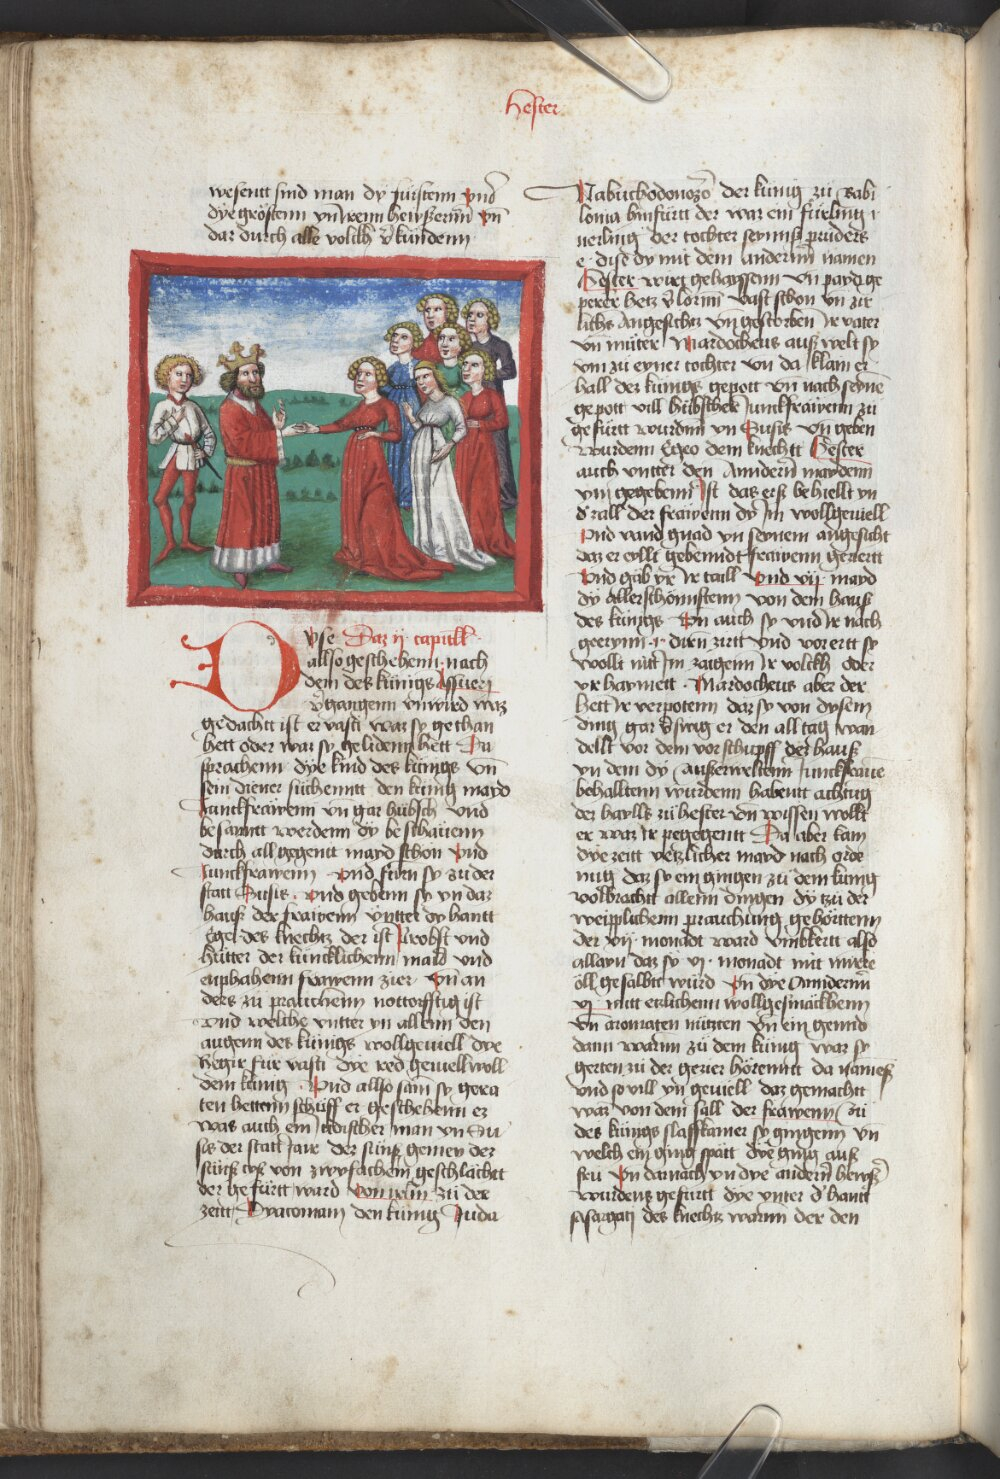 Hester
wesentt sind man dy fürstenn vnd
dye grösten vn wenn heẅßerinn vn̄
dar durch alle völckh v̄kündenn
Dyse Daz ij capitell
allso geschehenn nach
dem des künigs Assueri
v̄gangenn vnwird waz
gedachtt ist er vasti waz sy gethan
hett oder waz sy gelidenn hett Da
sprachenn dye kind des künigs vn̄
sein diener süchenntt den künig mayd
Junckfrawenn vn gar hübsch vnd
besanntt werdenn dy beschauenn
durch all gegentt mayd schon vnd
Junckfrawenn vnd fürn sy zu der
statt Susis vnd gebenn sy yn daz
hauß der frawenn vntter dy hantt
Egei des knechtz der ist probst vnd
hütter der künicklichenn maid vnd
enphahenn frawenn zier vn̄ an
ders zu prauchenn nottorfftig ist
vnd welche vntter yn allenn den
augenn des künigs wollgeuell dye
Regir für vasti dye red geuell woll
dem künig vnd allso sam sy gera
ten hettenn schüff er geschehenn ez
was auch ein Jüdischer man yn Su
sis der statt Jair der sün semey der
sün cys von geschlächt
der gefürtt ward von Jerusalem zu der
zeitt Jeconiam den künig Juda
Nabuchodonozor der künig zu Babi
lonia hinfürtt der war ein
der tochter seynns prüders
dise dy mit dem anderrnn namen
Hester wirt gehayssenn vn payd ge
perer hetz v̄lornn vast schon vn zir
lichs angesichtz vn gestorben Ir vater
vn müter Mardocheus auß welt sy
vm zu eyner tochter vn da klain er
hall des künigs gepott vn nach seyne
gepott vill hübscher Junckfrawenn zu
gefürtt wurdnn yn Susis vn geben
wurdenn Egeo dem knechtt Hester
auch vntter den Anndern̄ maydenn
ym gegebenn Ist das er sy behiellt yn
d' zall der frawenn dy Im wollgeuell
vnd vand gnad yn seynem angesicht
daz er eyllt gebenndt frawenn gezierrt
vnd gab yr Ir taill vnd vij mayd
dy allerschönnstenn von dem hauß
des künigs vn̄ auch sy vnd Ir nach
zirtt vnd vor ertt sy
wollt nitt Im zaigenn Ir volckh oder
yr haymett Mardocheus aber der
hett Ir verpotenn daz sy von dysem
ding gar v̄swig er den all tag wan
dellt vor dem vorschupff des hauß
yn dem dy außerweltenn Junckfraw̄e
behalltenn wurdenn habentt achtug
des haylls zu hester vn wissen wollt
er waz Ir pegegentt Da aber kam
dye zeitt yetzlicher mayd nach orde
nug daz sy ein gingen zu dem künig
volbracht allenn dingen dy tzu der
weipplichenn prauchung gehörttenn
der xij monadt ward vmbkertt also
allayn daz sy vj monadt mit mirre
öll gesalbtt würd vn dye Annderrnn
vj mitt ettlichenn wollgesmäckhenn
vn̄ aromaten nützten vn ein gennd
dann warnn zu dem künig waz sy
gertenn zu der gezier hörenntt da namens
vnd so vill yn geuiell daz gemachtt
waz von dem sall der frawenn zu
des künigs slaffkamer sy gingenn vn̄
welch ein ging spätt dye ging auß
fru vn darnach yn dye andern hewß
wurdens gefürtt dye vnter d' hantt
Asargatz des knechtz warnn der den